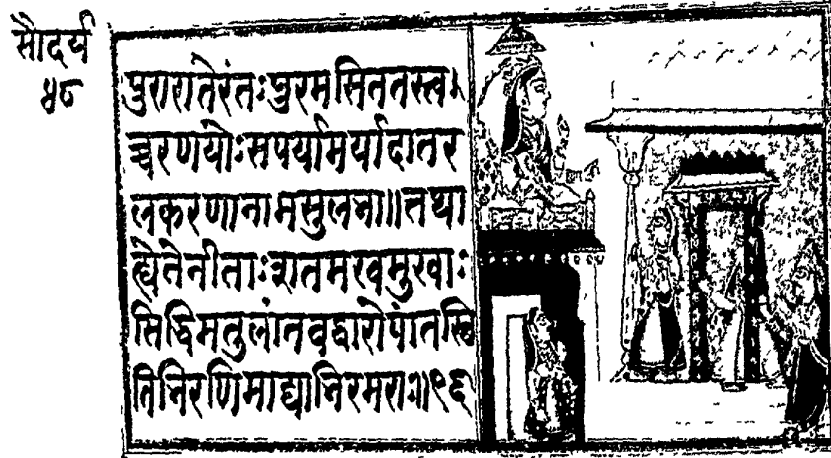 सौदर्य
४८
पुरारातेरंतःपुरमसिततस्त्व
च्चरणयोःसपर्यामर्यादातर
लकरणानामसुलभा॥तथा
ह्येतेनीताःशतमखमुखाः
सिद्धिमतुलांतवद्वारोपांतस्थि
तिभिरणिमाद्याभिरमराः॥९६